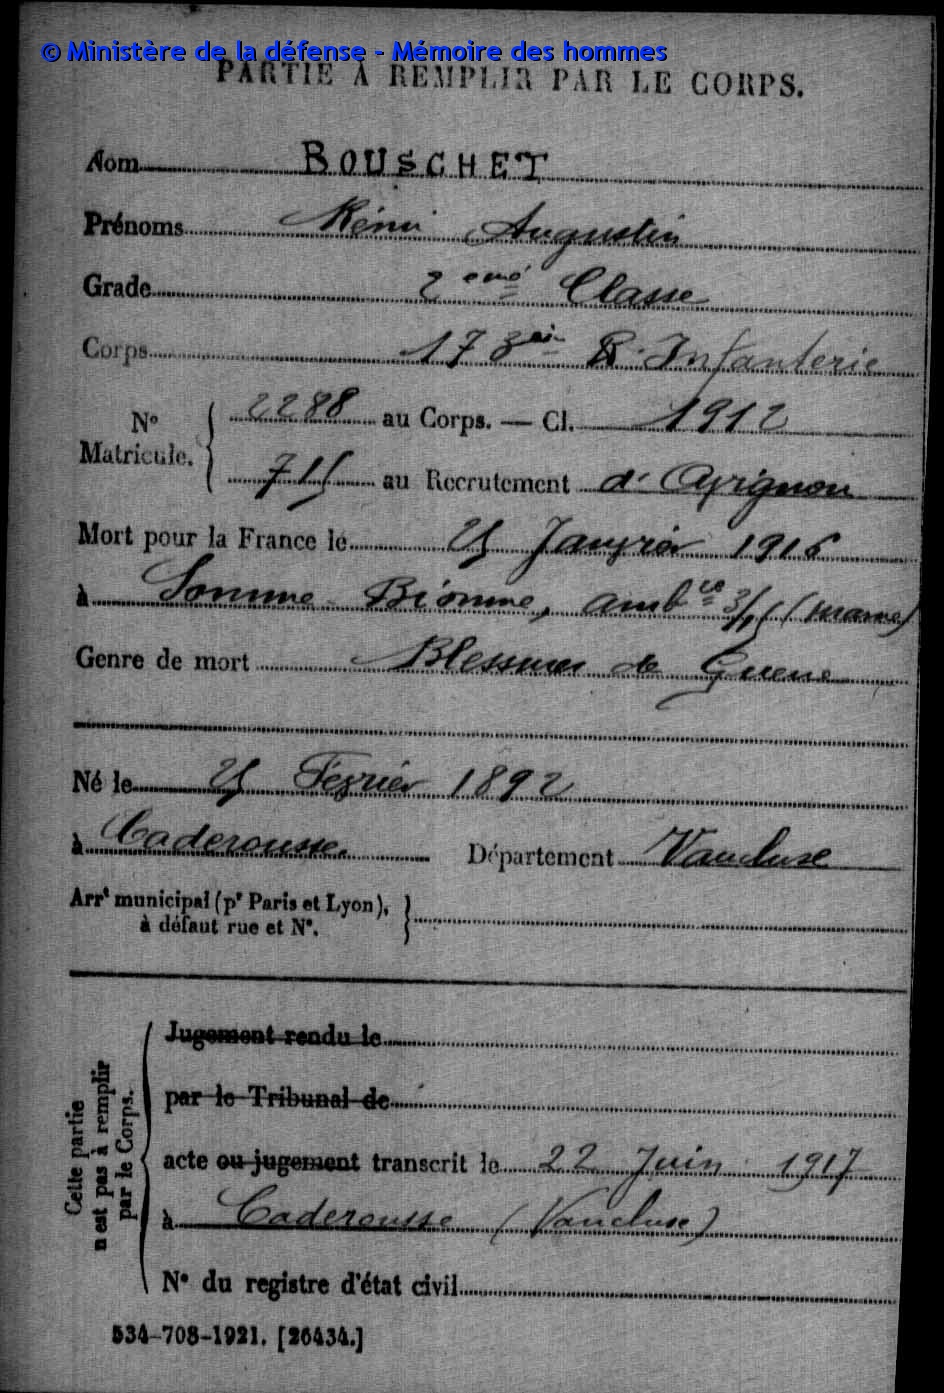 © Ministère de la défense - Mémoire des hommes
PARTIE À REMPLIR PAR LE CORPS.
Nom BOUSCHET
Prénoms Rémi Augustin
Grade 2ème Classe
Corps 173ei R. Infanterie
N° Matricule. 2288 au Corps. — Cl. 1912
715 au Recrutement d'Avignon
Mort pour la France le 25 Janvier 1916
à Somme-Bionne, ambce 3/15 (Marne)
Genre de mort Blessures de Guerre
Né le 25 Février 1892
à Caderousse. Département Vaucluse
Arrt municipal (pr Paris et Lyon),
à défaut rue et N°.
Cette partie
n'est pas à remplir
par le Corps.
Jugement rendu le
par le Tribunal de
acte ou jugement transcrit le 22 Juin 1917
à Caderousse (Vaucluse)
N° du registre d'état civil
534-708-1921. [26434.]